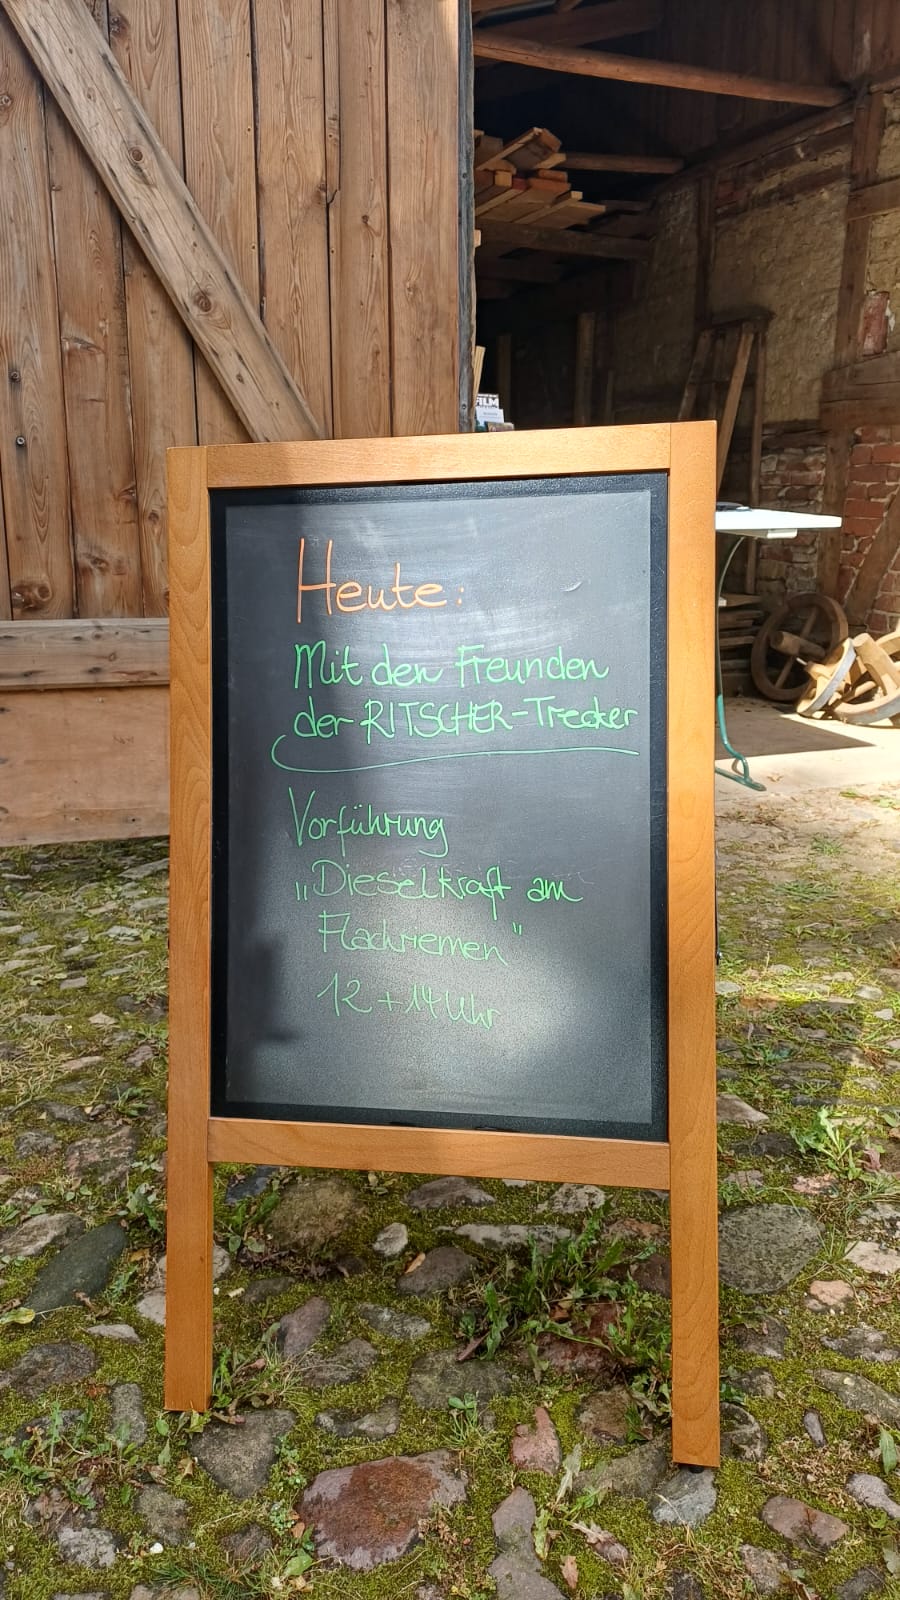 FILM
Heute:
Mit den Freunden
der RITSCHER-Trecker
Vorführung
„Dieselkraft am
Flachriemen"
12 + 14 Uhr